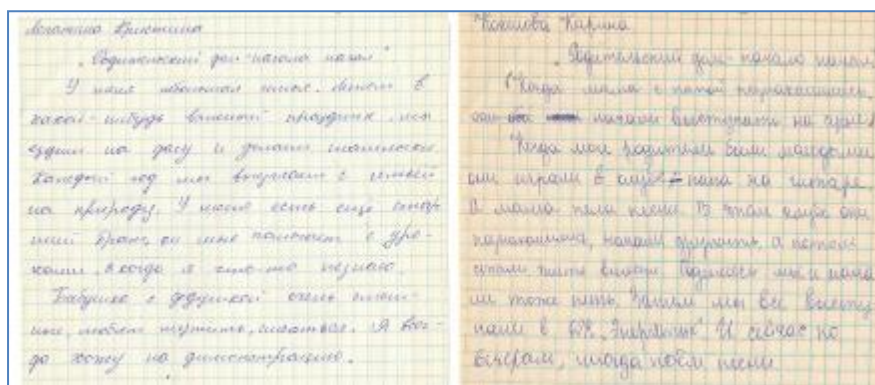 Кристина
„Родительский дом - начало начал"
У меня большая семья. Летом в
какой-нибудь великий праздник, мы
ездим на дачу и делаем шашлыки.
Каждый год мы выезжаем с семьёй
на природу. У меня есть ещё стар
ший брат, он мне помогает с уро-
ками, когда я что-то не знаю.
Бабушка с дедушкой очень
любят шутить, смеяться. Я все-
да хожу на демонстрацию.
Карина
„Родительский дом - начало начал"
Когда мама с папой
они начали выступать на сцене
Когда мои родители были молодыми
они играли в папа на гитаре.
А мама пела песни. В этом клубе они
начали дружить, а потом
стали жить вместе. Родилась я и нача
ли тоже петь. Затем мы все высту
пали в И сейчас по
вечерам, иногда поём песни